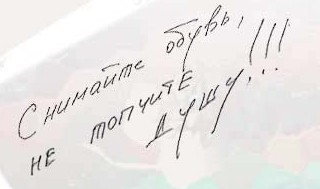 Снимайте обувь,
не топчите
душу,!!!